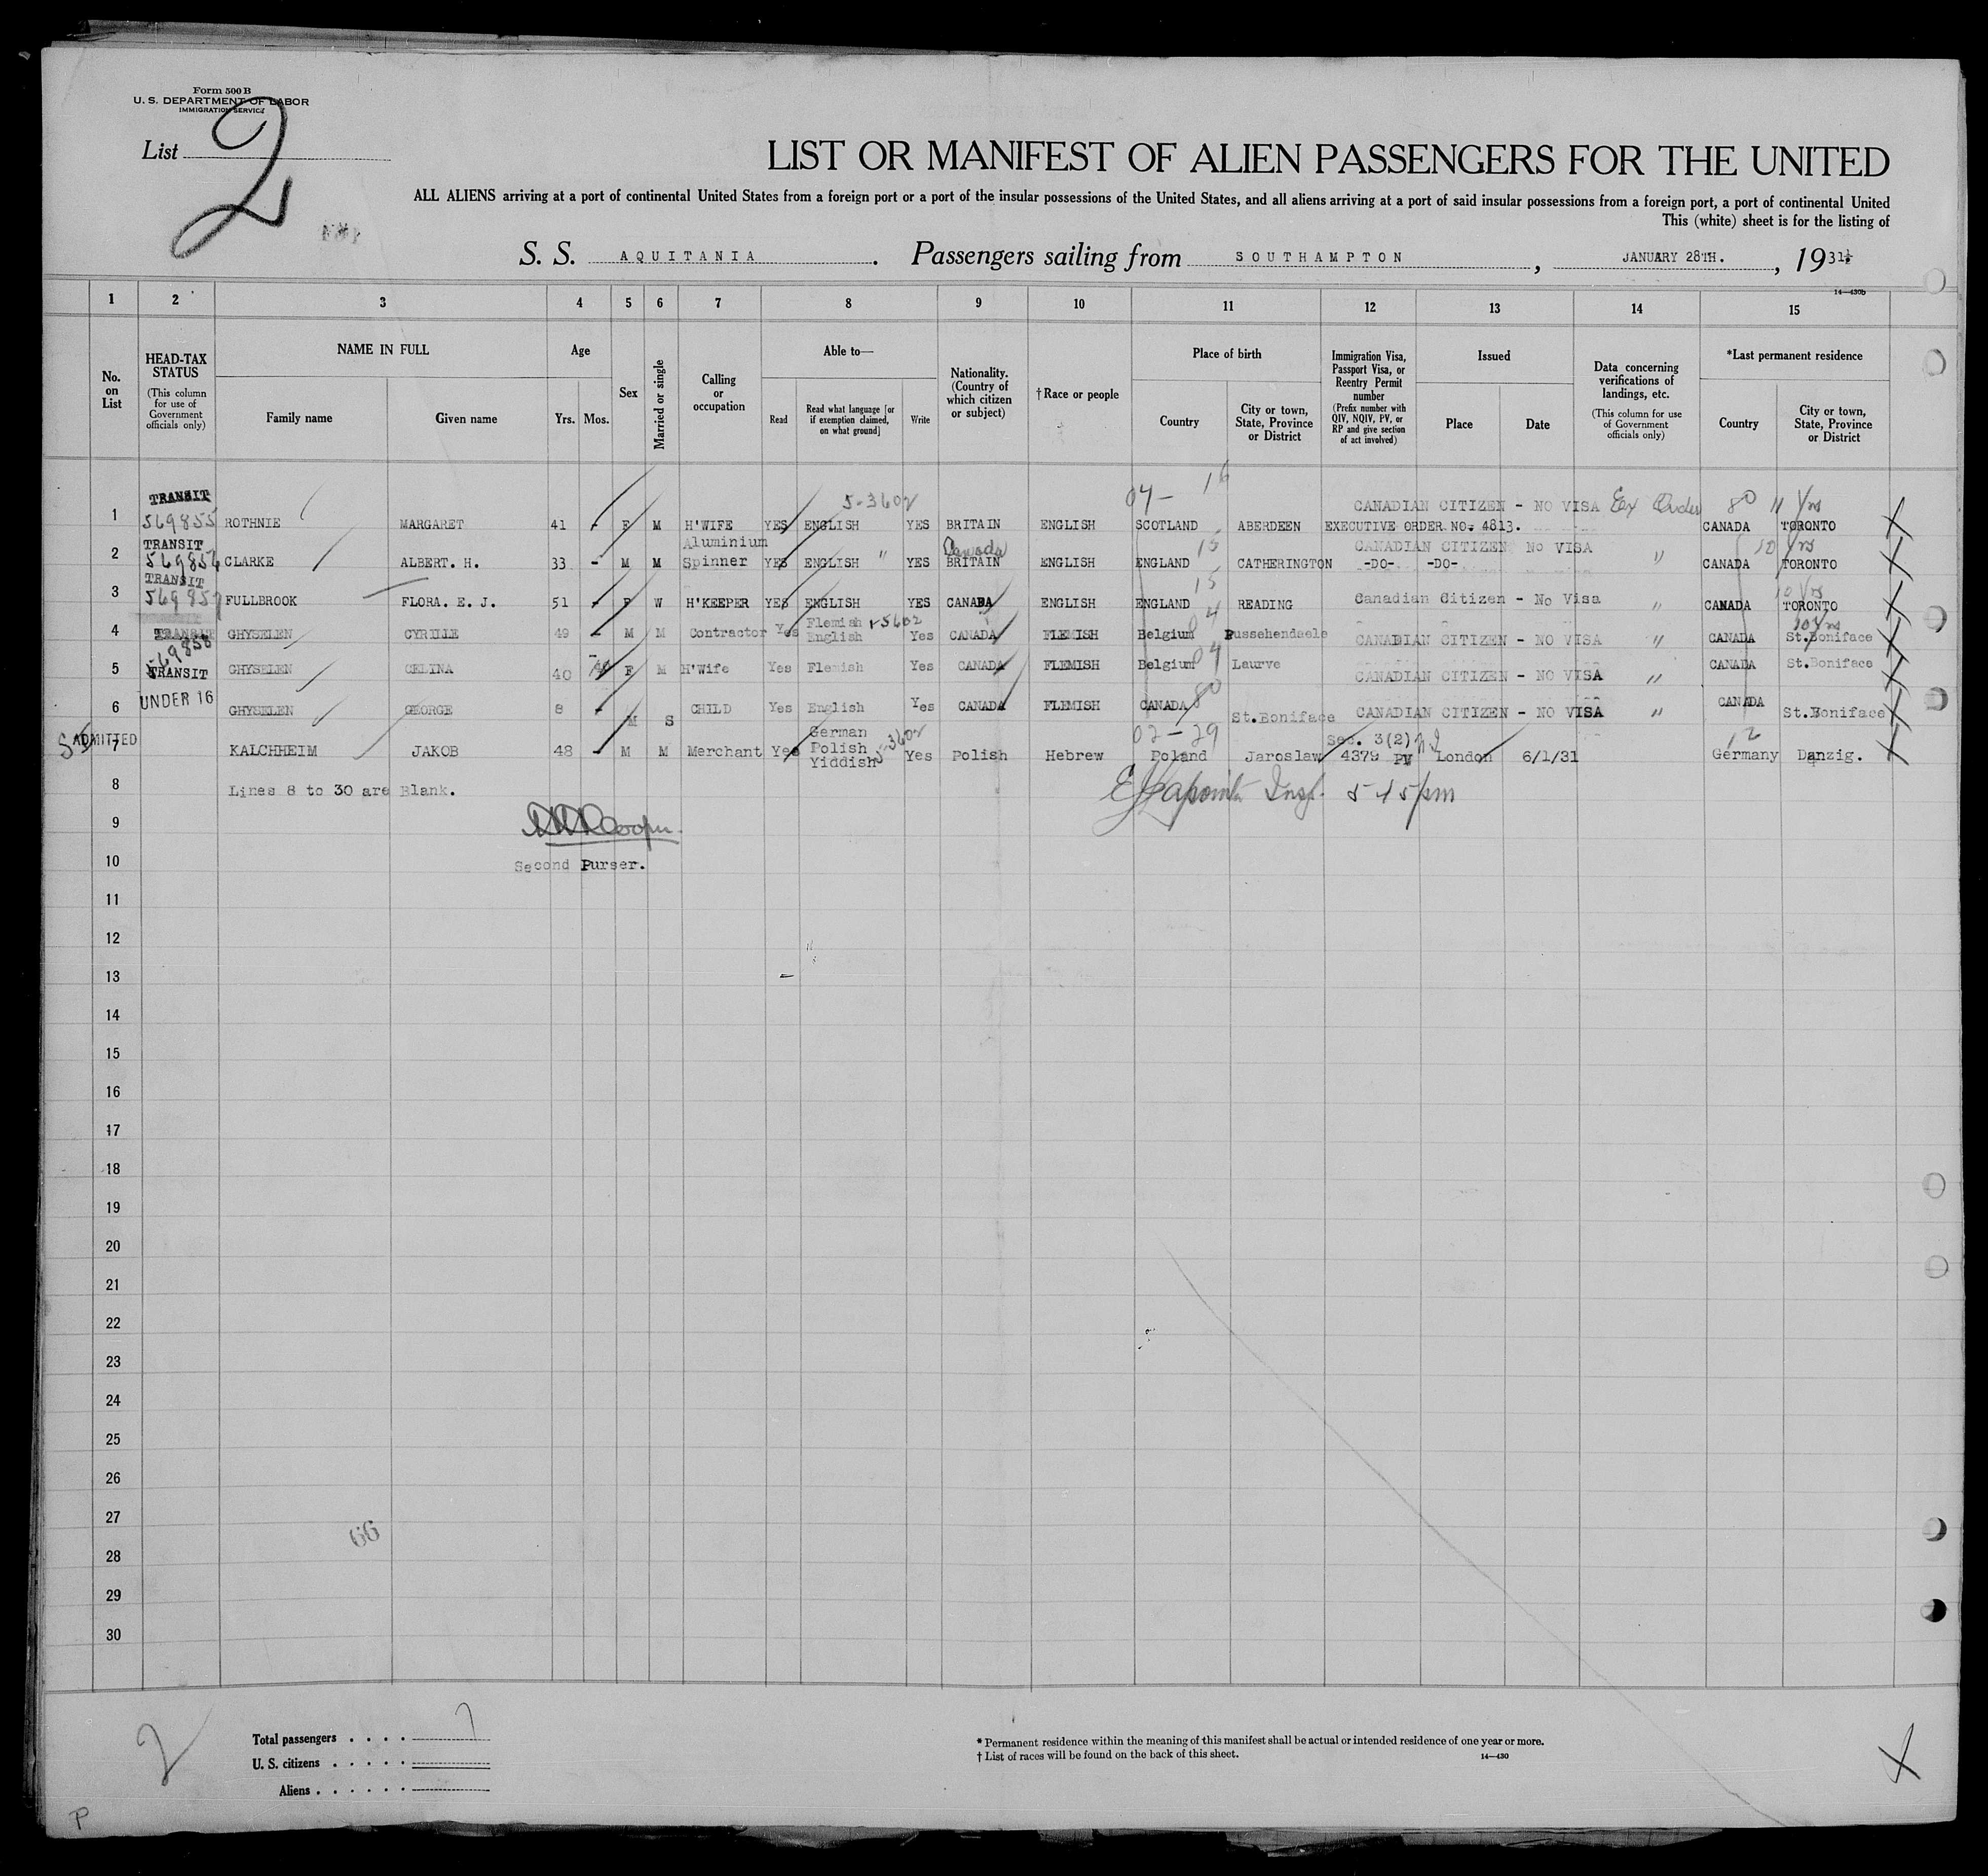 Form 500 B
U. S. DEPARTMENT OF LABOR
IMMIGRATION SERVICE
List 2
LIST OR MANIFEST OF ALIEN PASSENGERS FOR THE UNITED
ALL ALIENS arriving at a port of continental United States from a foreign port or a port of the insular possessions of the United States, and all aliens arriving at a port of said insular possessions from a foreign port, a port of continental United
This (white) sheet is for the listing of
S. S. AQUITANIA. Passengers sailing from SOUTHAMPTON, JANUARY 28TH., 1931
14—430b
1 2 3 4 5 6 7 8 9 10 11 12 13 14 15
No. on List
HEAD-TAX STATUS (This column for use of Government officials only)
NAME IN FULL
Family name Given name
Age
Yrs. Mos.
Sex
Married or single
Calling or occupation
Able to—
Read Read what language [or if exemption claimed, on what ground] Write
Nationality. (Country of which citizen or subject)
†Race or people
Place of birth
Country City or town, State, Province or District
Immigration Visa, Passport Visa, or Reentry Permit number (Prefix number with QIV, NQIV, PV, or RP and give section of act involved)
Issued
Place Date
Data concerning verifications of landings, etc. (This column for use of Government officials only)
*Last permanent residence
Country City or town, State, Province or District
TRANSIT 5-3602 04- 16 CANADIAN CITIZEN - NO VISA Ex Order 80 11 yrs
1 569855 ROTHNIE MARGARET 41 - F M H'WIFE YES ENGLISH YES BRITAIN ENGLISH SCOTLAND ABERDEEN EXECUTIVE ORDER NO. 4813. CANADA TORONTO
TRANSIT Aluminium Canada 15 CANADIAN CITIZEN NO VISA 10 yrs
2 569856 CLARKE ALBERT. H. 33 - M M Spinner YES ENGLISH " YES BRITAIN ENGLISH ENGLAND CATHERINGTON -DO- -DO- " CANADA TORONTO
TRANSIT 15 10 yrs
3 569857 FULLBROOK FLORA. E. J. 51 - F W H'KEEPER YES ENGLISH YES CANADA ENGLISH ENGLAND READING Canadian Citizen - No Visa " CANADA TORONTO
Flemish 5602 04 10 yrs
4 TRANSIT GHYSELEN CYRILLE 49 - M M Contractor Yes English Yes CANADA FLEMISH Belgium Pussehendaele CANADIAN CITIZEN - NO VISA " CANADA St.Boniface
569858
5 TRANSIT GHYSELEN CELINA 40 F M H'Wife Yes Flemish Yes CANADA FLEMISH Belgium 04 Laurve CANADIAN CITIZEN - NO VISA " CANADA St.Boniface
6 UNDER 16 GHYSELEN GEORGE 8 - M S CHILD Yes English Yes CANADA FLEMISH CANADA 80 St.Boniface CANADIAN CITIZEN - NO VISA " CANADA St.Boniface
ADMITTED German Polish 5-3602 02-29 Sec. 3(2) 12
7 KALCHHEIM JAKOB 48 - M M Merchant Yes Yiddish Yes Polish Hebrew Poland Jaroslaw 4379 PV London 6/1/31 Germany Danzig.
8 Lines 8 to 30 are Blank. Insp. 545pm
9
Second Purser.
10
11
12
13
14
15
16
17
18
19
20
21
22
23
24
25
26
27
66
28
29
30
2
Total passengers . . . . 7
U. S. citizens . . . . .
Aliens . . . . . .
* Permanent residence within the meaning of this manifest shall be actual or intended residence of one year or more.
† List of races will be found on the back of this sheet. 14—430
P